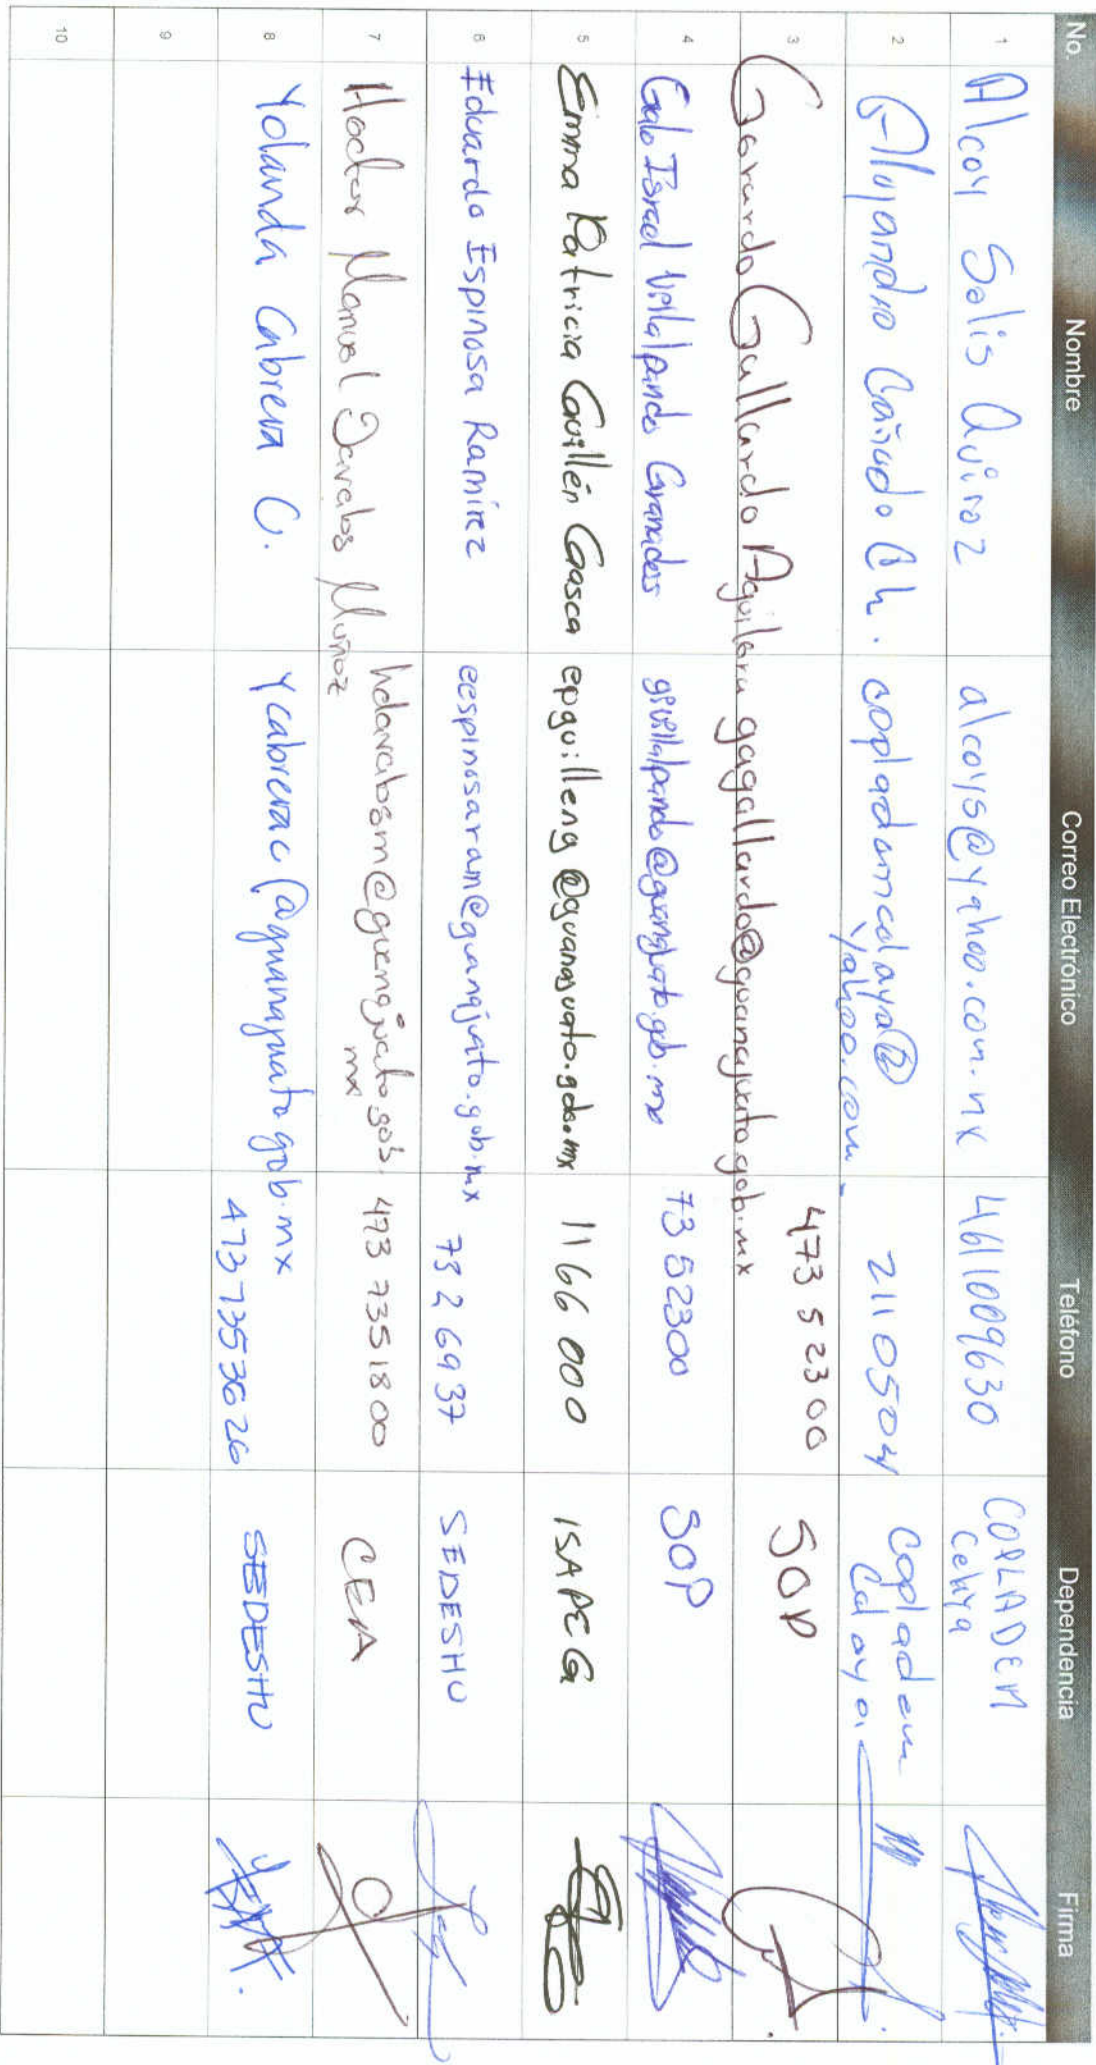 No. Nombre Correo Electrónico Teléfono Dependencia Firma
1 Alcoy Solis Quiroz alcoys@yahoo.com.mx 4611009630 COPLADEM Celaya
2 Alejandro Cañado Ch. coplademcelaya@yahoo.com 2110504 Copladem Celaya
3 Gerardo Gallardo Aguilera gagallardo@guanajuato.gob.mx 473 52300 SOP
4 Galo Israel Villalpando Granados givillalpando@guanajuato.gob.mx 7352300 SOP
5 Emma Patricia Guillén Gasca epguilleng@guanajuato.gob.mx 1166000 ISAPEG
6 Eduardo Espinosa Ramírez eespinosaram@guanajuato.gob.mx 7326937 SEDESHU
7 Hector Manuel Davalos Muñoz hdavalosm@guanajuato.gob.mx 473 7351800 CEA
8 Yolanda Cabrera C. ycabrerac@guanajuato.gob.mx 473 7353626 SEDESHU
9
10